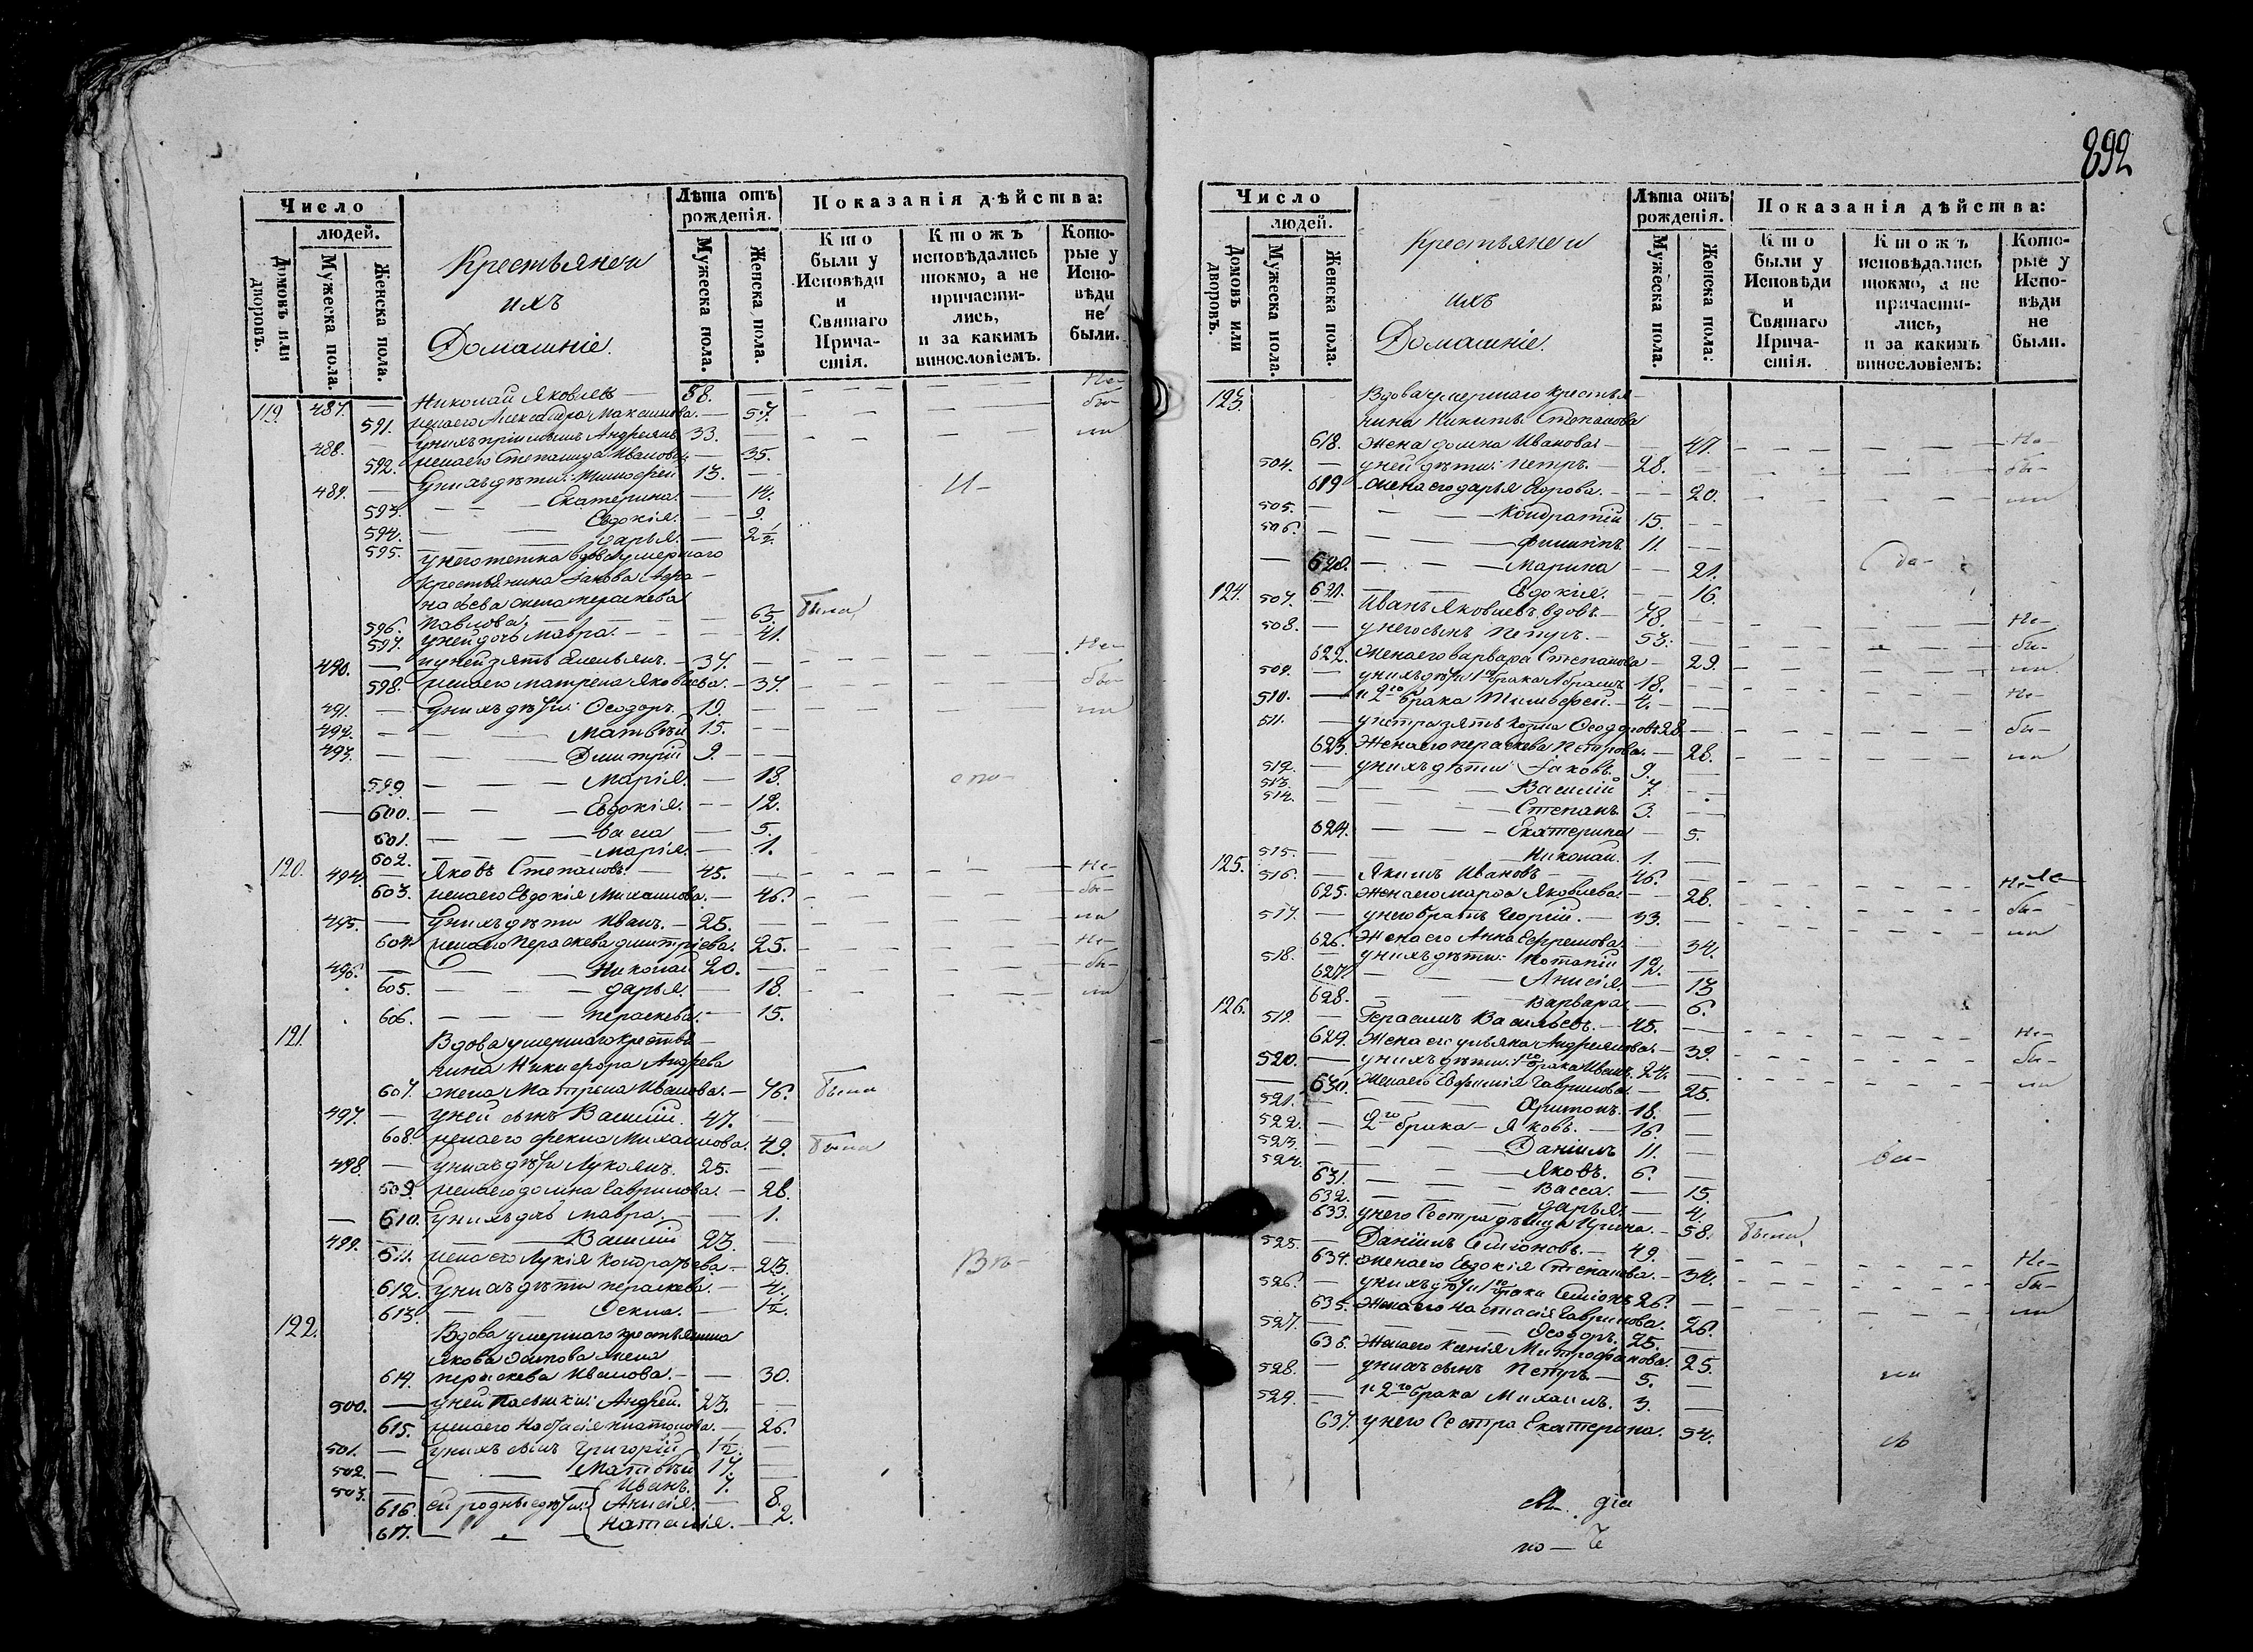 892
Число
людей.
Домовъ или дворовъ.
Мужеска пола.
Женска пола.
Крестьяне и
ихъ
Домашніе.
Лѣта отъ рожденія.
Мужеска пола.
Женска пола.
Показанія дѣйства:
Кто были у Исповѣди и Святаго Причастія.
Ктожъ исповѣдались токмо, а не причастились, и за какимъ винословіемъ.
Которые у Исповѣди не были.
119. 487. — Николай Яковлевъ — 58. — Не-
591. жена его Александра Максимова. — 57. бы-
488. У нихъ пріимышъ Андреянъ 33. — ли
592. жена его Степанида Иванова — 35.
489. — У нихъ дѣти: Тимофей 13. — И-
593. — Екатерина. — 14.
594. — Евдокія. — 9.
595. — Дарья. — 2½.
у него тетка вдова умершаго
крестьянина Іакова
жена перасковья
596. Павлова. — 65. была
597. у ней дочь Мавра. — 41.
490. — у ней зять Емельянъ. — 37. — Не-
598. жена его Матрена Яковлева. — 37. бы-
491. — У нихъ дѣти: Ѳеодоръ. 19. — ли
492. — Матвѣй 15. —
493. — Димитрій 9. —
599. — Марія. — 18. спо-
600. — Евдокія. — 12.
601. — Васса — 5.
602. — Марія. — 1.
120. 494. — Яковъ Степановъ. — 45. — Не-
603. жена его Евдокія Михайлова. — 46. бы-
495. — У нихъ дѣти Иванъ. — 25. — ли
604. жена его Параскева Димитріева. 25. Не-
496. — Николай 20. — бы-
605. — Дарья. — 18. ли
606. — Параскева. — 15.
121. Вдова умершаго крестья-
нина Никифора Андреева
607. жена Матрена Иванова. — 76. была
497. — у ней сынъ Василій. 47. —
608. жена его Фекла Михайлова. 49. была
498. — У нихъ дѣти Лукоянъ. 25. —
609. жена его Домна Гаврилова. — 28.
610. У нихъ дочь Мавра. — 1.
499. — Василій 23. —
611. жена его Лукія Кондратьева — 23. Вѣ-
612. У нихъ дѣти Параскева. — 4.
613. — Фекла. — 1½.
122. Вдова умершаго крестьянина
Якова жена
614. Параскева Иванова. — 30.
500. — у ней пасынки: Андрей. 23. —
615. жена его Настасія Платонова. — 26.
501. — У нихъ сынъ Григорій 1½. —
502. — Матвѣй 17. —
503. — Иванъ. 7. —
616. ей родные дѣти: Анисія. — 8.
617. — Наталія. — 2.
Число
людей.
Домовъ или дворовъ.
Мужеска пола.
Женска пола.
Крестьяне и
ихъ
Домашніе.
Лѣта отъ рожденія.
Мужеска пола.
Женска пола:
Показанія дѣйства:
Кто были у Исповѣди и Святаго Причастія.
Ктожъ исповѣдались токмо, а не причастились, и за какимъ винословіемъ:
Которые у Исповѣди не были.
123. Вдова умершаго крестья-
нина Никиты Степанова
618. жена Домна Иванова — 47. Не-
504. — у ней дѣти: Петръ. — 28. — бы-
619. жена его Дарья Егорова. — 20. ли
505. — Кондратій 15. —
506. — Филиппъ. 11. —
620. — Марина — 21. да-
621. — Евдокія. — 16.
124. 507. — Иванъ Яковлевъ вдовъ. — 78. — Не-
508. — у него сынъ Петръ. — 53. — бы-
622. Жена его Варвара Степанова — 29. ли
509. — у нихъ дѣти 1го брака Абрамъ 18. — Не-
510. — и 2го брака Тимофей. — 4. —
511. — у Петра зять Козма Ѳеодоровъ 28. — бы-
623. Жена его Параскева Петрова. — 28. ли
512. — у нихъ дѣти: Іаковъ. 9. —
513. — Василій 7. —
514. — Степанъ 3. —
624. — Екатерина — 5.
515. — Николай. 1. —
125. 516. — Якимъ Ивановъ — 46. — Не-
625. Жена его Марѳа Яковлева. — 28. бы-
517. — у него братъ Георгій. — 33. — ли
626. Жена его Анна Ефремова. — 34.
518. — у нихъ дѣти: Потапій 12. —
627. — Анисія. — 13
628. — Варвара. — 6.
126. 519. — Герасимъ Васильевъ. — 45. — Не-
629. Жена его Ульяна Андреянова. — 39. бы-
520. — у нихъ дѣти: 1го брака Иванъ. 24. — ли
630. Жена его Евфимія Гаврилова. — 25.
521. — Харитонъ. 18. —
522. — 2го брака — Яковъ. — 16. —
523. — Даніилъ 11. — ви-
524. — Яковъ. 6. —
631. — Васса. — 15.
632. — Дарья. — 4.
633. у него Сестра дѣвица Ирина. — 58. была
525. — Даніилъ Семіоновъ. — 49. — Не-
634. Жена его Евдокія Степанова. — 34. бы-
526. — у нихъ дѣти 1го брака Семіонъ 26. — ли
635. Жена его Настасія Гаврилова. 26.
527. — Ѳеодоръ. 25. —
636. Жена его Ксенія Митрофанова. 25.
528. — у нихъ сынъ Петръ — 5. —
529. — и 2го брака Михаилъ. 3. —
637. у него Сестра Екатерина. 54.